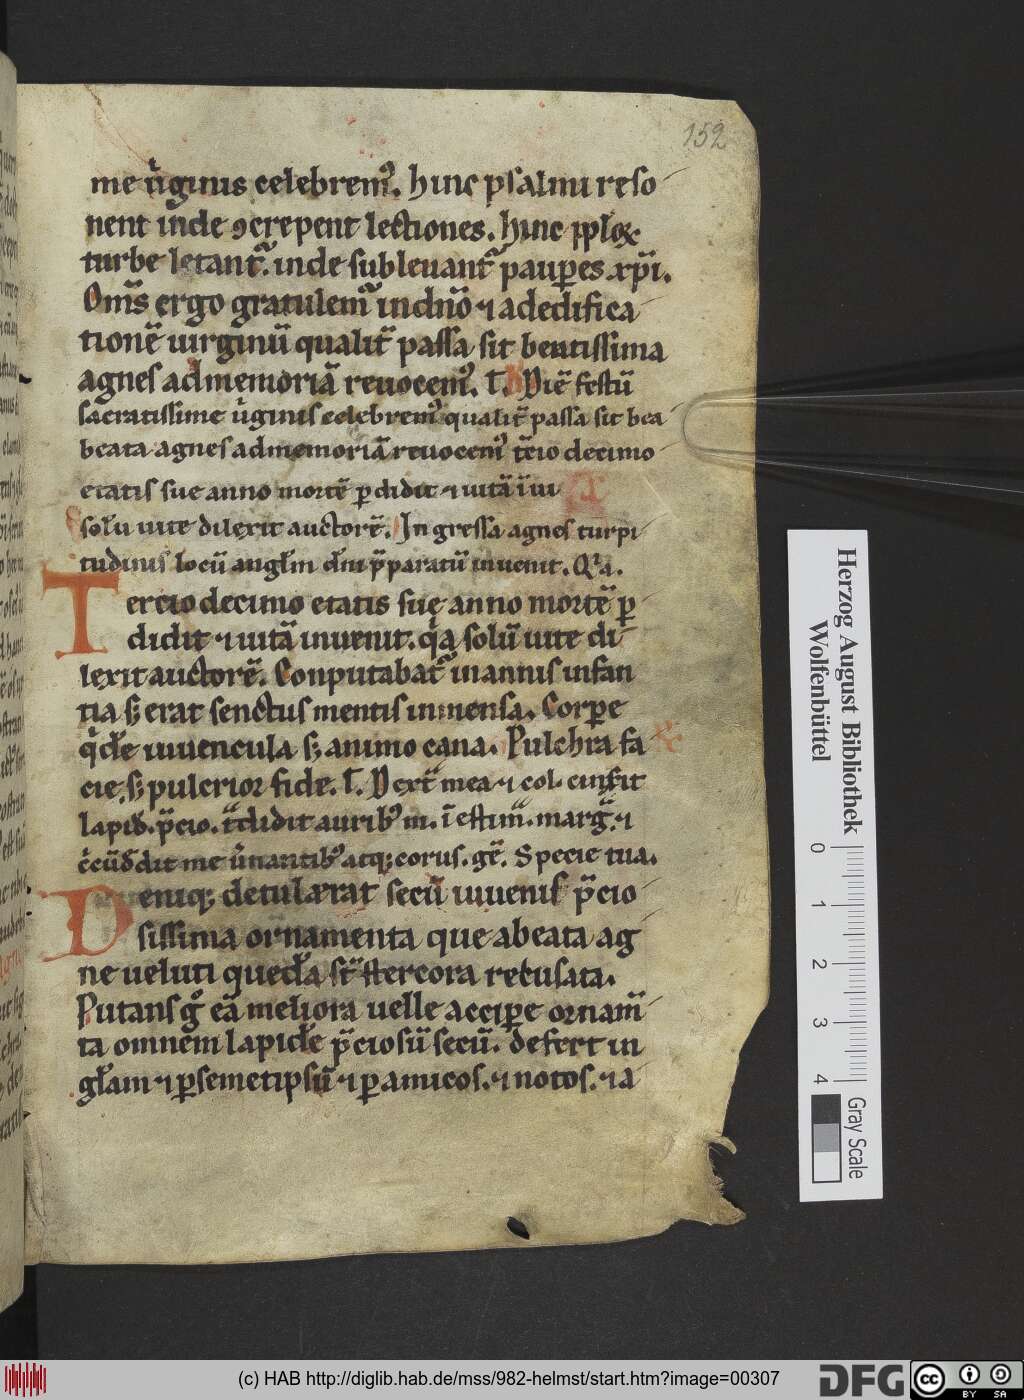 152
me ũginis celebrem᷒. hinc psalmi reso
nent inde ꝯcrepent lectiones. hinc pploꝝ
turbe letant᷑. inde subleuant᷑ pauꝑes xp̄i.
Om̄s ergo gratulem᷑ in dn̄o ⁊ ad edifica
tionē uirginū qualit̄ passa sit beatissima
agnes ad memoriā reuocem᷒. Diē festū
sacratissime ũginis celebrem᷒ qualit̄ passa sit bea
beata agnes ad memoriā reuocem᷒ t̄cio decimo
etatis sue anno mortē ꝑdidit ⁊ uitā
solū uite dilexit auctorē. Ingressa agnes turpi
tudinis locū angłm dn̄i p̄paratū inuenit.
Tercio decimo etatis suę anno mortē ꝑ
didit ⁊ uitā inuenit. qͥa solū uite di
lexit auctorē. Conputabat᷑ in annis infan
tia sꝫ erat senectus mentis inmensa. Corꝑe
qͥdē iuuencula sꝫ animo cana. Pulchra fa
cie sꝫ pulcrior fide. Dext̄ mea ⁊ col. cinxit
lapid. p̄cio. t̄didit aurib᷒ m. īestim. marg. ⁊
c̄cūd̄dit me ũnantib᷒ atqꝫ corus. Specie tua.
Deniqꝫ detulærat secū iuuenis p̄cio
sissima ornamenta que a beata ag
ne ueluti quedā st̄ stercora recusata.
Putans gͦ eā meliora uelle acciꝑe ornam̄
ta omnem lapidē p̄ciosū secū. defert in
głam ⁊ ꝑ semetipsū ⁊ ꝑ amicos. ⁊ notos. ⁊ a
Herzog August Bibliothek
Wolfenbüttel
0 1 2 3 4
Gray Scale
(c) HAB http://diglib.hab.de/mss/982-helmst/start.htm?image=00307
DFG
cc BY SA